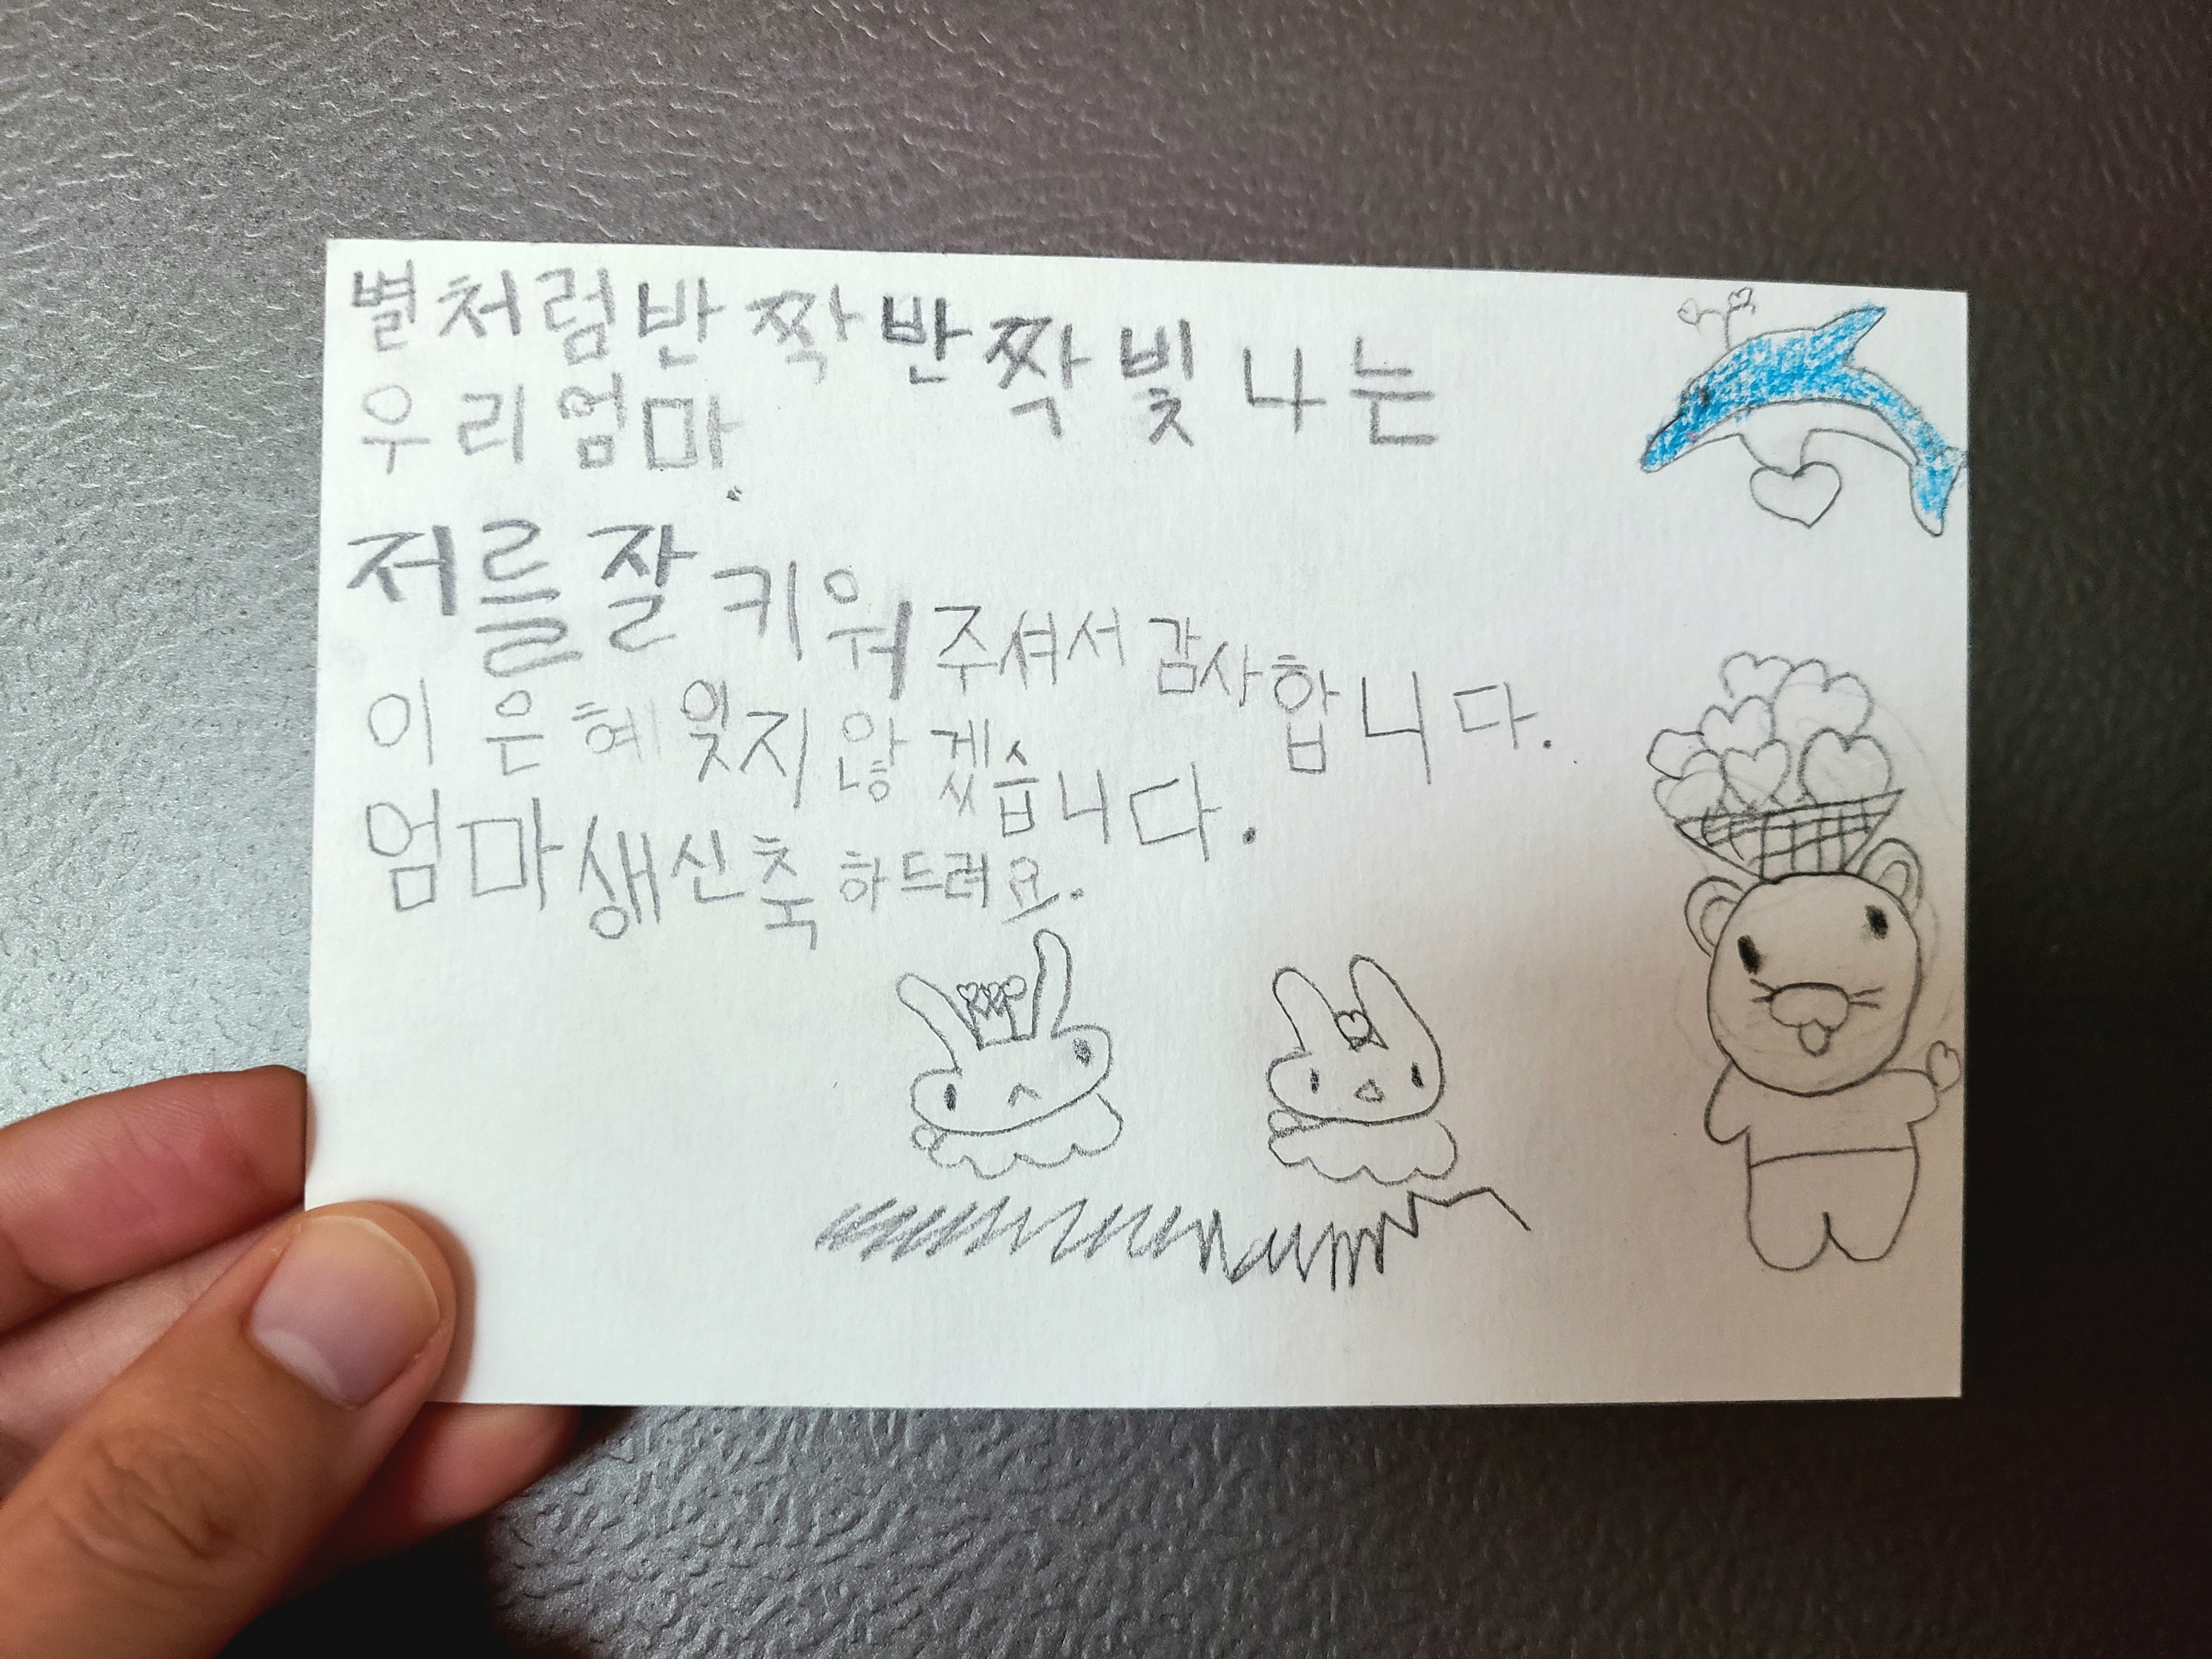 별처럼반짝반짝 빛 나는
우리엄마.
저를잘 키워주셔서 감사합니다.
이 은혜 잊지 않겠습니다.
엄마생신축하드려요.